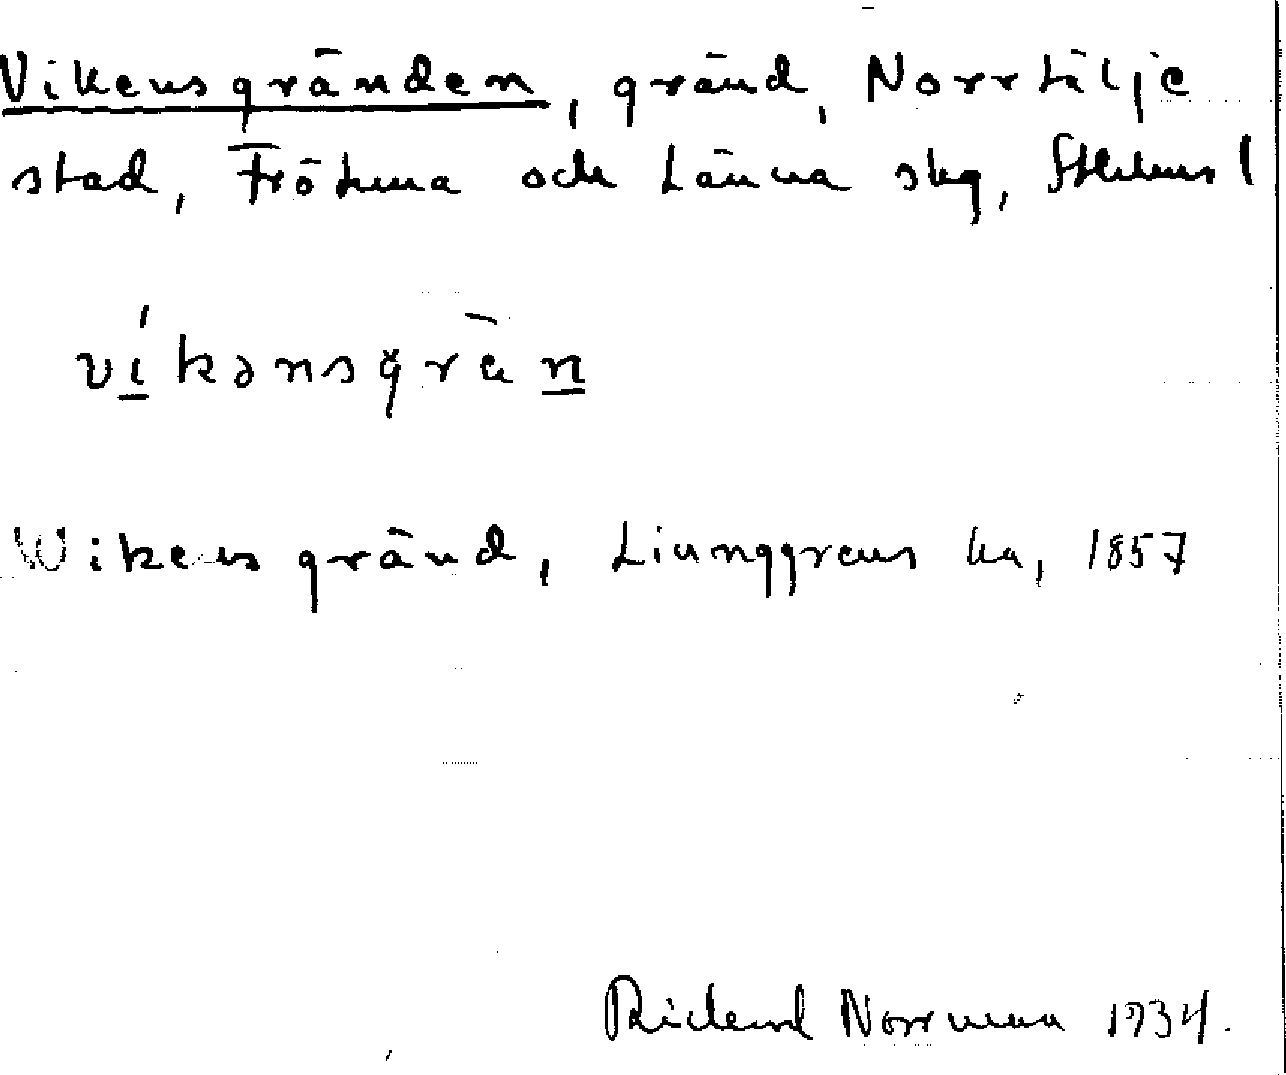 Vikensgränden, gränd, Norrtälje
stad, Frötuna och Länna skg, Sthlms l
víkənsgrä̀n
Wikens gränd, Liunggrens ka, 1857
Rickard Norrman 1934.